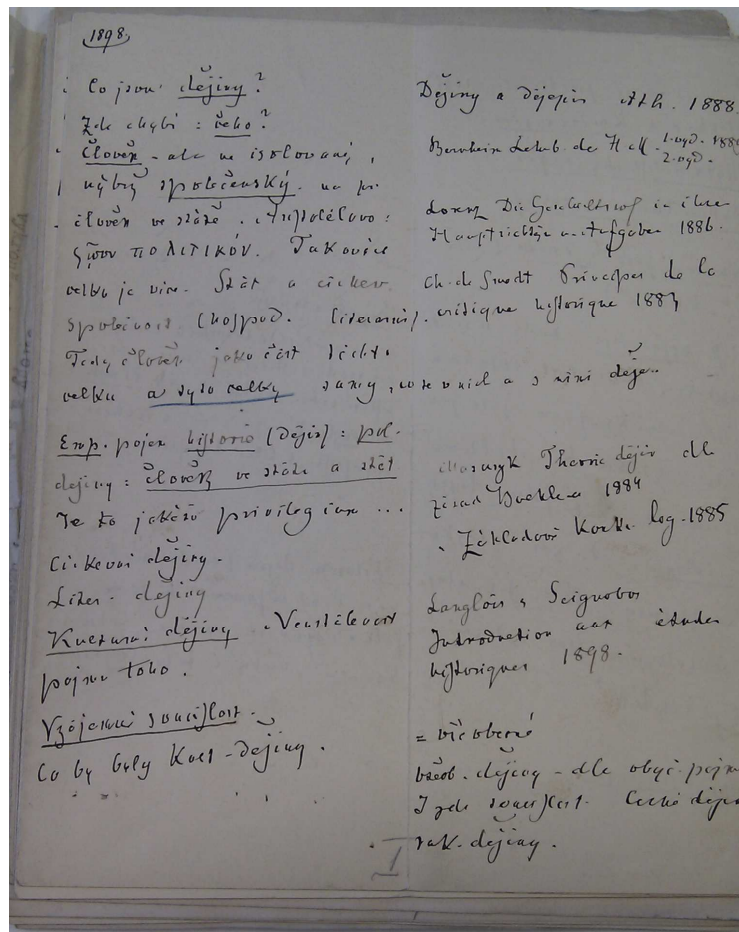 1898.
Co jsou dějiny?
Zde chybí: čeho?
Člověk - ale ne isolovaný,
nýbrž společenský.
člověk ve státě. Aristotelovo:
ζῷον πολιτικόν. Takovýchto
celků je více. Stát a církev
společnost (hospod. literární).
Tedy člověk jako část těchto
celků a tyto celky samy, co se v nich a s nimi děje.
Emp. pojem historie (dějin): pol.
dějiny: člověk ve státě a stát
Je to jakési privilegium ...
Církevní dějiny.
Liter. dějiny
Kulturní dějiny. Neustálenost
pojmu toho.
Vzájemná souvislost.
Co by byly Kult-dějiny.
Dějiny a dějepis Ath. 1888.
Bernheim Lehrb. der H. M. 1. vyd. 1889
2. vyd.
Lorenz Die Geschichtswiss. in ihren
Hauptrichtungen u. Aufgaben 1886.
Ch. de Smedt Principes de la
critique historique 1883
Masaryk Theorie dějin dle
zásad Buckle-a 1884
Základové Konkr. log. 1885
Langlois & Seignobos
Introduction aux études
historiques 1898.
= všeobecné
všeob. dějiny - dle obyč. pojmu
I zde souvislost. České dějiny
rak. dějiny.
I